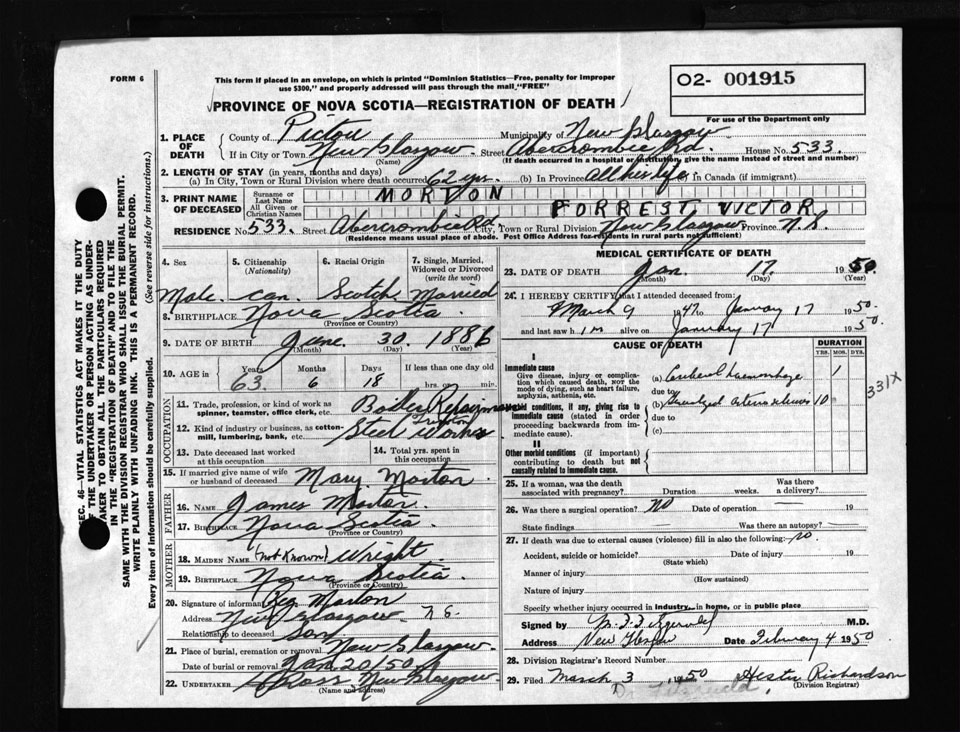 FORM 6
This form if placed in an envelope, on which is printed "Dominion Statistics—Free, penalty for improper
use $300," and properly addressed will pass through the mail "FREE"
O2- 001915
PROVINCE OF NOVA SCOTIA—REGISTRATION OF DEATH
For use of the Department only
SEC. 46—VITAL STATISTICS ACT MAKES IT THE DUTY
OF THE UNDERTAKER OR PERSON ACTING AS UNDER-
TAKER TO OBTAIN ALL THE PARTICULARS REQUIRED
IN THE "REGISTRATION OF DEATH" AND TO FILE THE
SAME WITH THE DIVISION REGISTRAR WHO SHALL ISSUE THE BURIAL PERMIT.
WRITE PLAINLY WITH UNFADING INK. THIS IS A PERMANENT RECORD.
Every item of information should be carefully supplied. (See reverse side for instructions.)
1. PLACE OF DEATH
County of Pictou Municipality of New Glasgow
If in City or Town New Glasgow Street Abercrombie Rd. House No. 533.
(Name) (If death occurred in a hospital or institution, give the name instead of street and number)
2. LENGTH OF STAY (in years, months and days)
(a) In City, Town or Rural Division where death occurred 62 yrs. (b) In Province all his life (c) in Canada (if immigrant)
3. PRINT NAME OF DECEASED
Surname or Last Name MORTON
All Given or Christian Names FORREST VICTOR
RESIDENCE No. 533. Street Abercrombie Rd City, Town or Rural Division New Glasgow Province N.S.
(Residence means usual place of abode. Post Office Address for residents in rural parts not sufficient)
4. Sex
5. Citizenship (Nationality)
6. Racial Origin
7. Single, Married, Widowed or Divorced (write the word)
Male. Can. Scotch. Married
8. BIRTHPLACE Nova Scotia
(Province or Country)
9. DATE OF BIRTH June. 30. 1886
(Month) (Day) (Year)
10. AGE in Years Months Days If less than one day old
63. 6 18 hrs. or min.
OCCUPATION
11. Trade, profession, or kind of work as spinner, teamster, office clerk, etc. Boiler Repairman
12. Kind of industry or business, as cotton-mill, lumbering, bank, etc. Trenton Steel Works
13. Date deceased last worked at this occupation
14. Total yrs. spent in this occupation
15. If married give name of wife or husband of deceased Mary Morton
FATHER
16. Name James Morton
17. Birthplace Nova Scotia
(Province or Country)
MOTHER
18. Maiden Name (not known) Wright
19. Birthplace Nova Scotia.
(Province or Country)
20. Signature of informant Reg Morton
Address New Glasgow N.S.
Relationship to deceased Son
21. Place of burial, cremation or removal New Glasgow.
Date of burial or removal Jan 20/50
22. UNDERTAKER Ross New Glasgow
(Name and address)
MEDICAL CERTIFICATE OF DEATH
23. DATE OF DEATH Jan. 17. 1950.
(Month) (Day) (Year)
24. I HEREBY CERTIFY that I attended deceased from:
March 9 1947 to January 17 1950.
and last saw him alive on January 17 1950.
CAUSE OF DEATH
DURATION
YRS. MOS. DYS.
I
Immediate cause
Give disease, injury or complication which caused death, NOT the mode of dying, such as heart failure, asphyxia, asthenia, etc.
(a) Cerebral haemorrhage 1
due to
Morbid conditions, if any, giving rise to immediate cause (stated in order proceeding backwards from immediate cause).
(b) Generalized arteriosclerosis 10
due to
(c)
331X
II
Other morbid conditions (if important) contributing to death but not causally related to immediate cause.
25. If a woman, was the death associated with pregnancy? Duration weeks. Was there a delivery?
26. Was there a surgical operation? No Date of operation 19
State findings Was there an autopsy?
27. If death was due to external causes (violence) fill in also the following: no.
Accident, suicide or homicide? Date of injury 19
(State which)
Manner of injury
(How sustained)
Nature of injury
Specify whether injury occurred in industry, in home, or in public place
Signed by M.D.
Address New Glasgow Date February 4 1950
28. Division Registrar's Record Number
29. Filed March 3 1950 Hester Richardson
(Division Registrar)